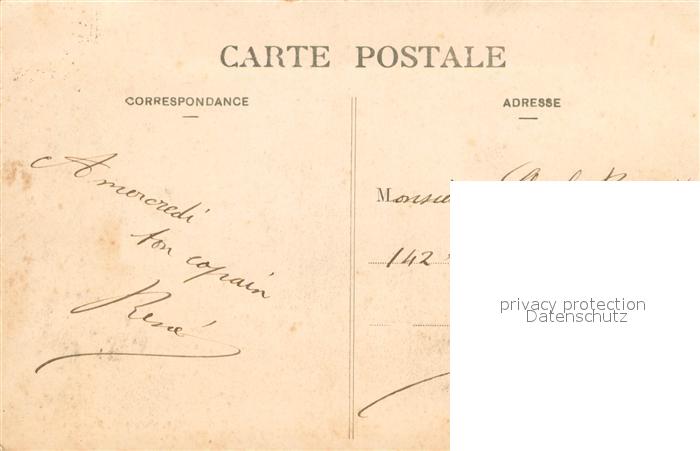 CARTE POSTALE
CORRESPONDANCE
A mercredi
ton copain
René
ADRESSE
142
privacy protection
Datenschutz